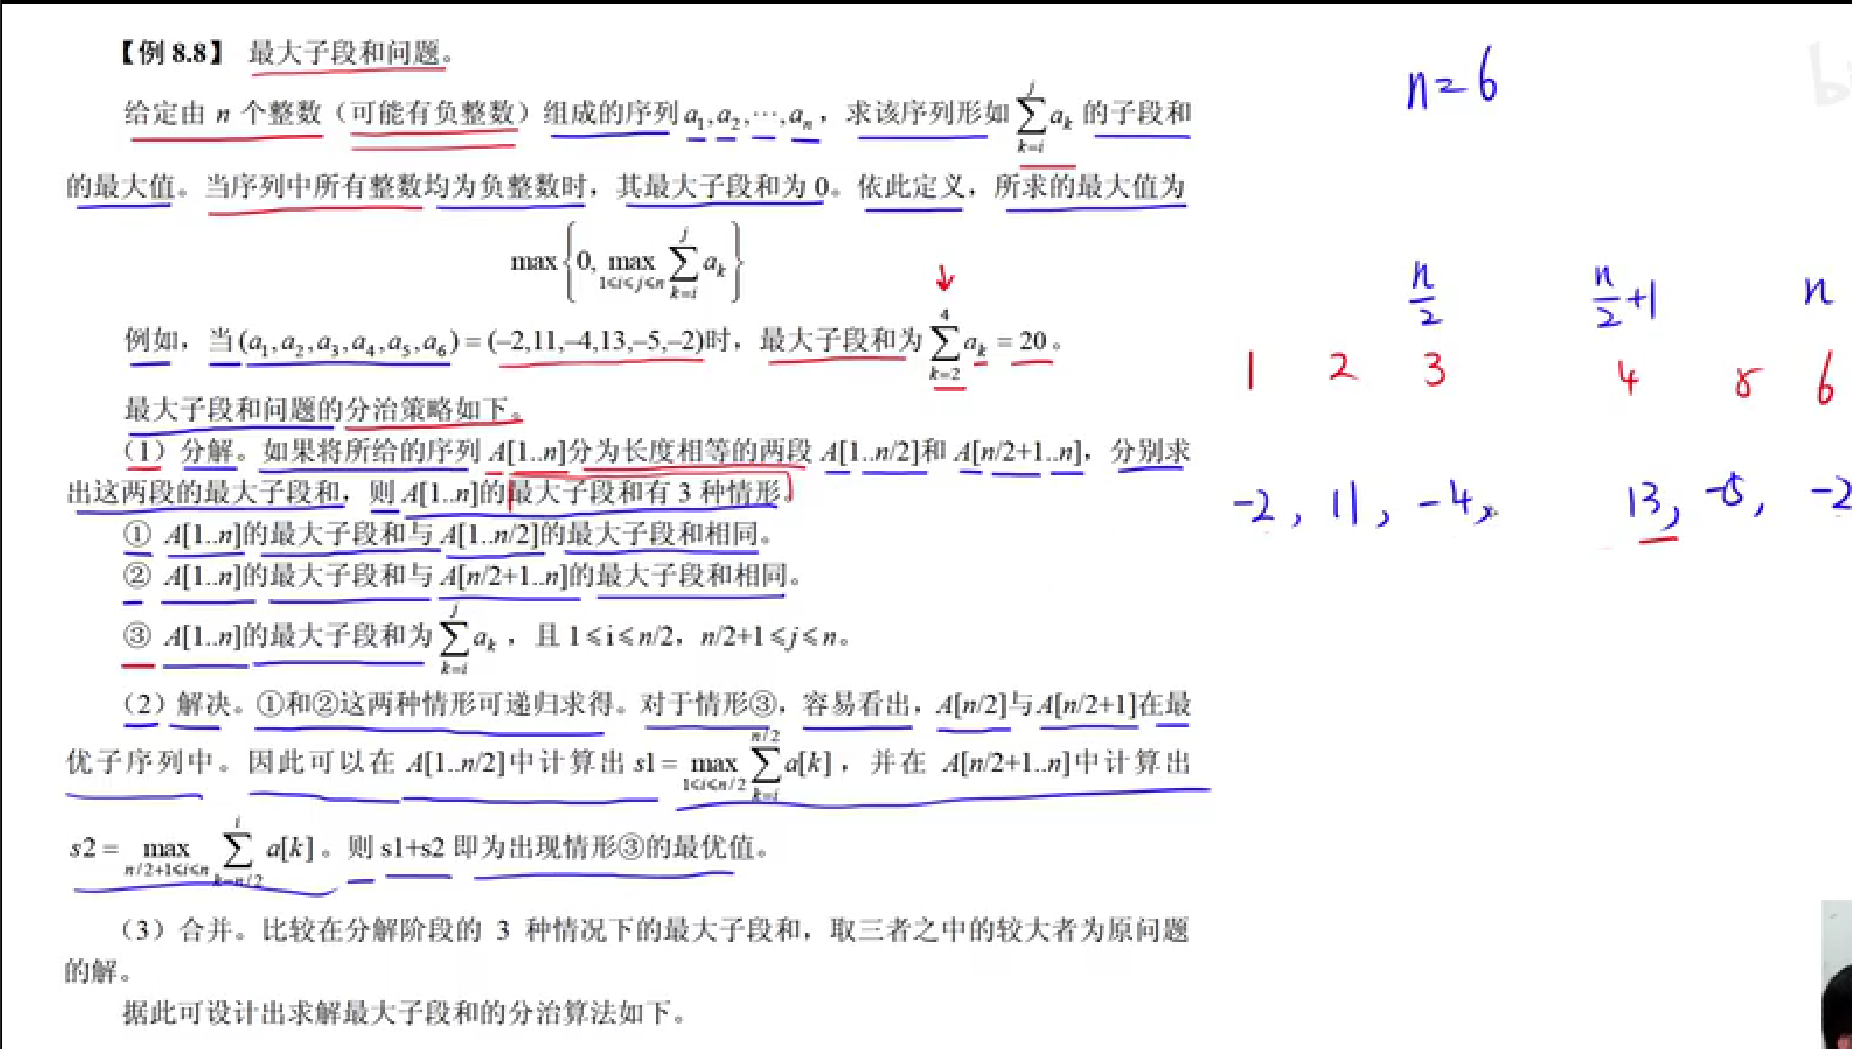 【例 8.8】 最大子段和问题。
n=6
给定由 n 个整数（可能有负整数）组成的序列 a₁,a₂,⋯,aₙ，求该序列形如 ∑_{k=i}^{j} aₖ 的子段和
的最大值。当序列中所有整数均为负整数时，其最大子段和为 0。依此定义，所求的最大值为
max{0, max_{1≤i≤j≤n} ∑_{k=i}^{j} aₖ}
n/2 n/2+1 n
例如，当(a₁,a₂,a₃,a₄,a₅,a₆)=(–2,11,–4,13,–5,–2)时，最大子段和为 ∑_{k=2}^{4} aₖ = 20。
1 2 3 4 5 6
最大子段和问题的分治策略如下。
（1）分解。如果将所给的序列 A[1..n]分为长度相等的两段 A[1..n/2]和 A[n/2+1..n]，分别求
出这两段的最大子段和，则 A[1..n]的最大子段和有 3 种情形。
-2, 11, -4, 13, -5, -2
① A[1..n]的最大子段和与 A[1..n/2]的最大子段和相同。
② A[1..n]的最大子段和与 A[n/2+1..n]的最大子段和相同。
③ A[1..n]的最大子段和为 ∑_{k=i}^{j} aₖ，且 1≤i≤n/2，n/2+1≤j≤n。
（2）解决。①和②这两种情形可递归求得。对于情形③，容易看出，A[n/2]与A[n/2+1]在最
优子序列中。因此可以在 A[1..n/2]中计算出 s1= max_{1≤i≤n/2} ∑_{k=i}^{n/2} a[k]，并在 A[n/2+1..n]中计算出
s2 = max_{n/2+1≤i≤n} ∑_{k=n/2}^{i} a[k]。则 s1+s2 即为出现情形③的最优值。
（3）合并。比较在分解阶段的 3 种情况下的最大子段和，取三者之中的较大者为原问题
的解。
据此可设计出求解最大子段和的分治算法如下。